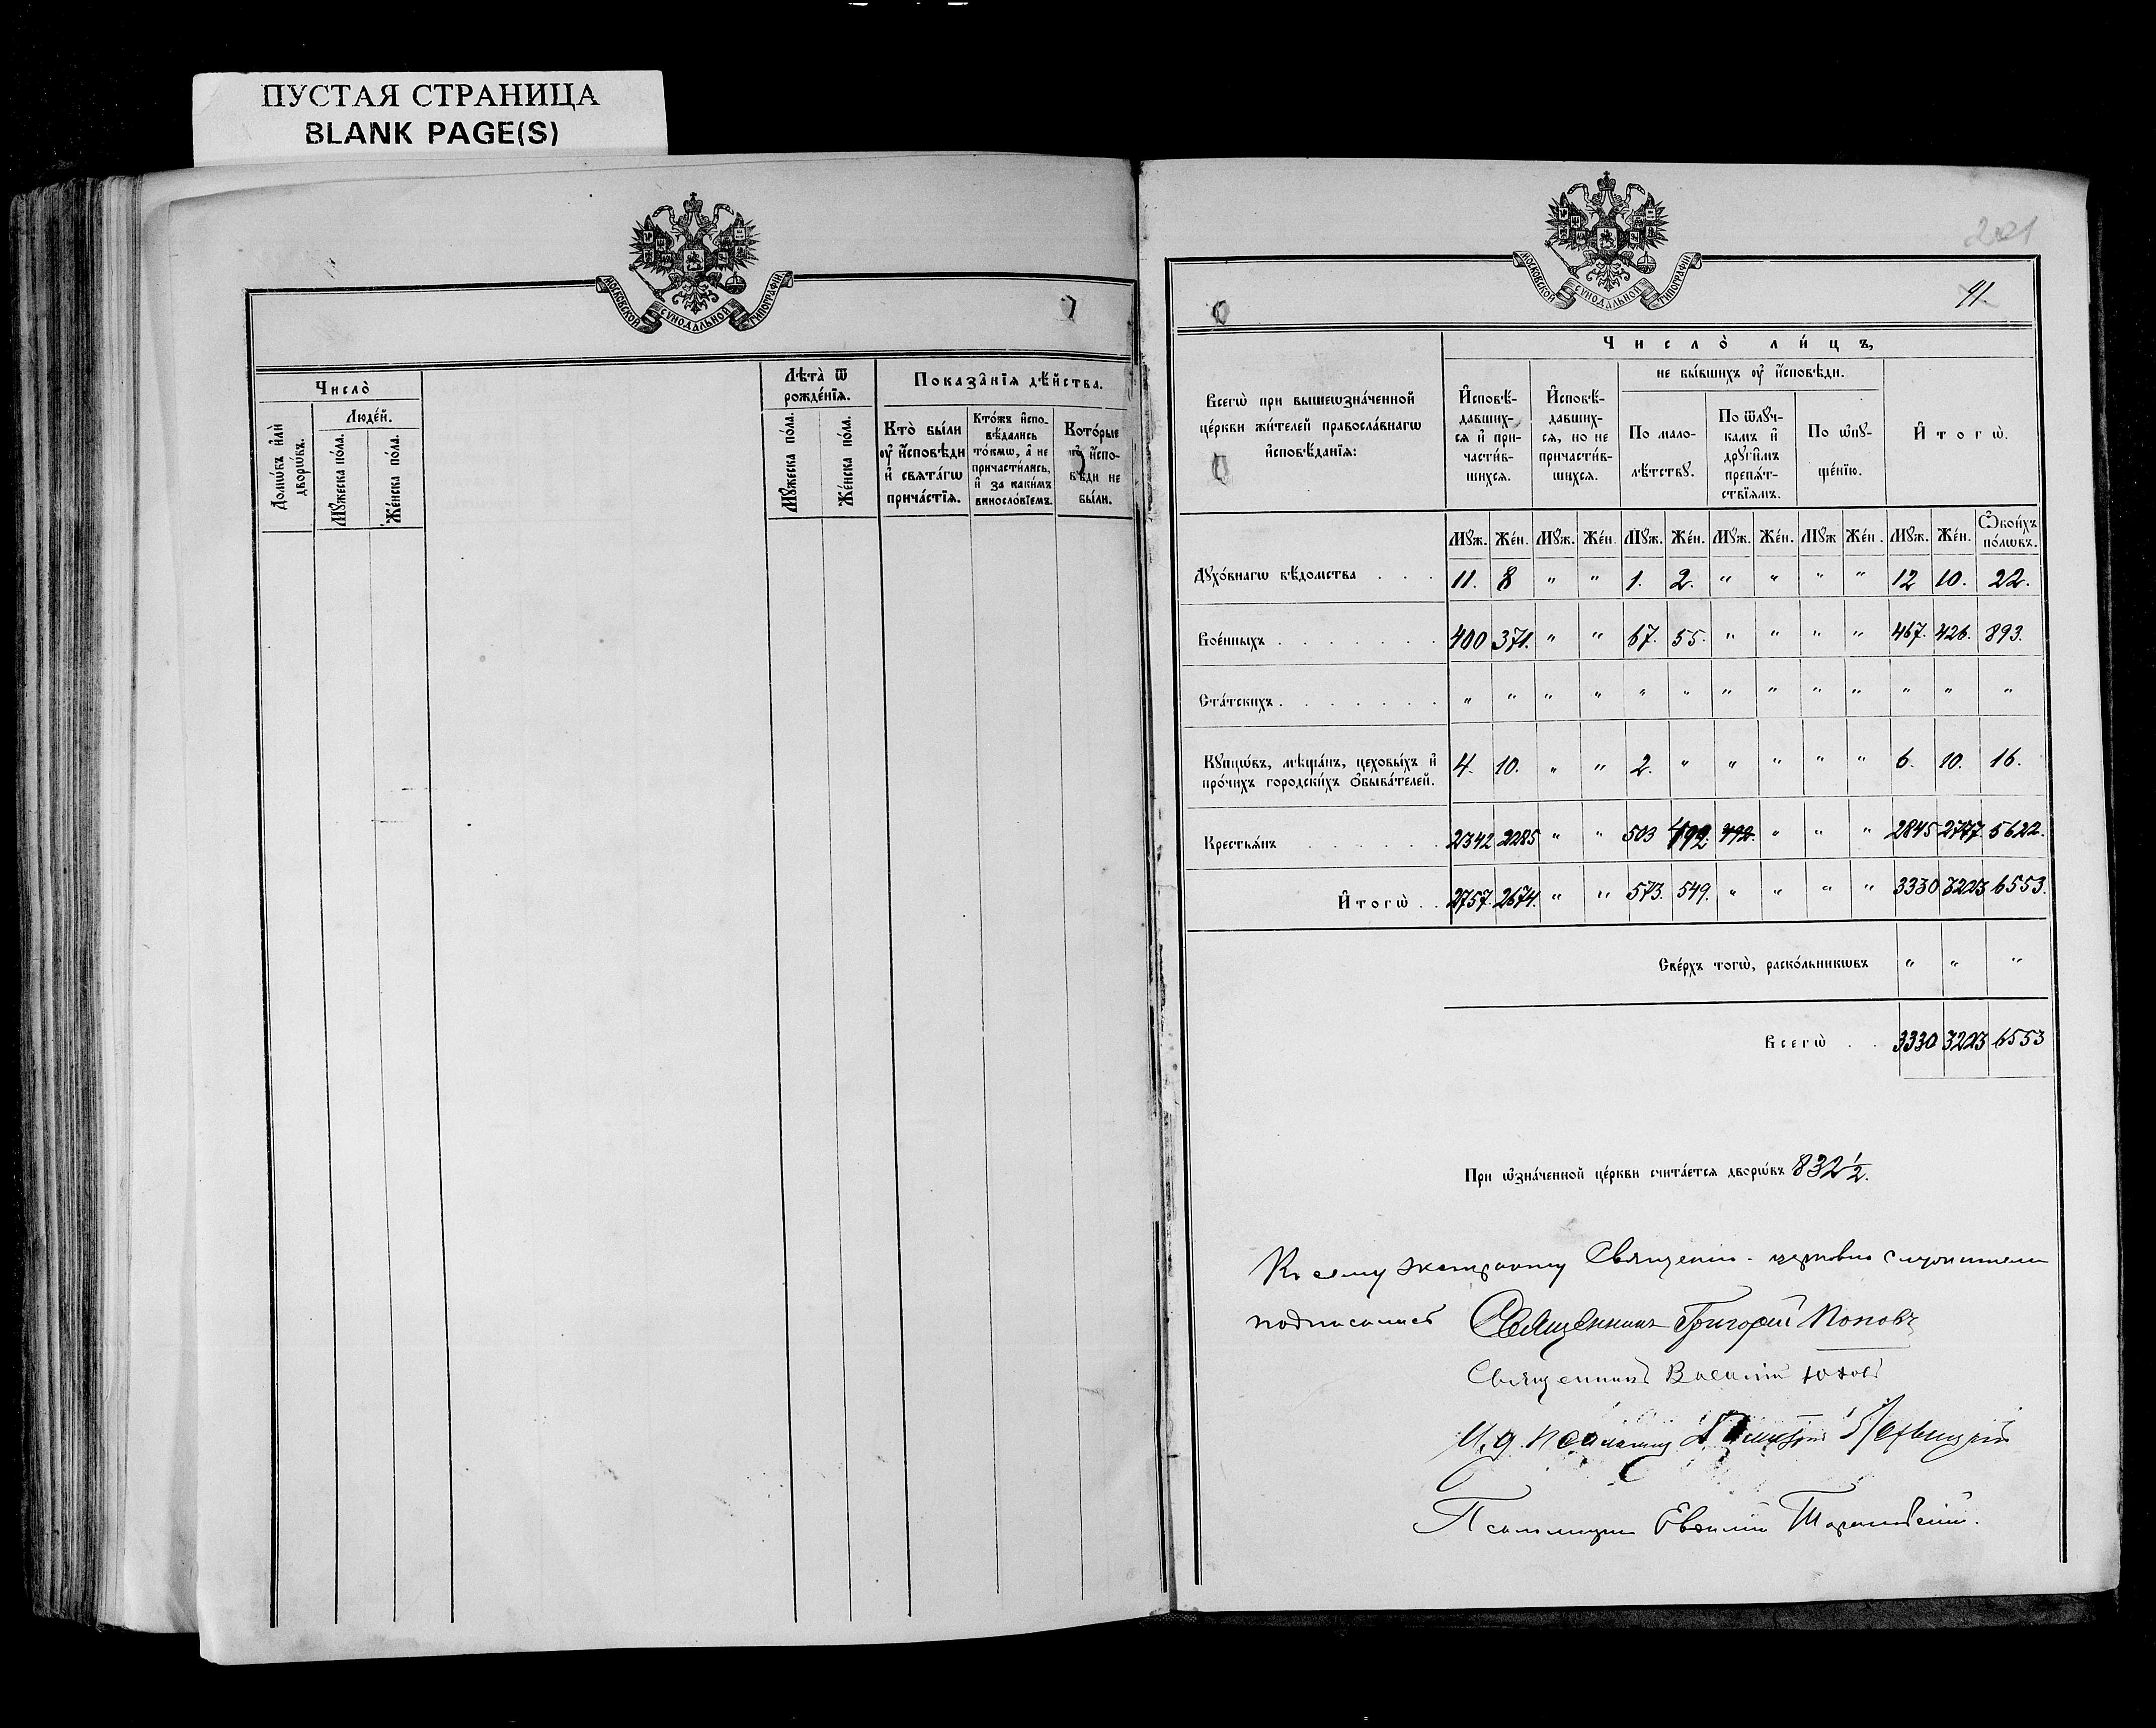 ПУСТАЯ СТРАНИЦА
BLANK PAGE(S)
МОСКОВСКОЙ СУНОДАЛЬНОЙ ТИПОГРАФІИ
Число̀
Домѡ́въ и҆лѝ дворѡ́въ.
Люде́й.
Мꙋ́жеска по́ла.
Же́нска по́ла.
Лѣ̑та ѿ рожде́нїѧ.
Мꙋ́жеска по́ла.
Же́нска по́ла.
Показа̑нїѧ дѣ́йства.
Кто̀ бы́ли оу҆ и҆сповѣ́ди и҆ свѧта́гѡ прича́стїѧ.
Кто́жъ и҆сповѣ́дались то́кмѡ, а҆ не причасти́лись, и҆ за каки́мъ винословїемъ.
Кото́рые оу҆ и҆сповѣ́ди не бы́ли.
201
МОСКОВСКОЙ СУНОДАЛЬНОЙ ТИПОГРАФІИ
41.
Всегѡ̀ при вышеѡзна́ченной це́ркви жи́телей правосла́внагѡ и҆сповѣ́данїѧ:
Число̀ ли́цъ,
И҆сповѣ́давшихсѧ и҆ причасти́вшихсѧ.
И҆сповѣ́давшихсѧ, но не причасти́вшихсѧ.
не бы́вшихъ оу҆ и҆сповѣ́ди.
По малолѣ́тствꙋ.
По ѿлꙋ́чкамъ и҆ дрꙋги̑мъ препѧ́тствїѧмъ.
По ѡ҆пꙋще́нїю.
И҆тогѡ̀.
Мꙋж. Же́н. Мꙋж. Же́н. Мꙋж. Же́н. Мꙋж. Же́н. Мꙋж Же́н. Мꙋж. Же́н. Ѻ҆бои́хъ по́лѡвъ.
Дꙋхо́внагѡ вѣ́домства . . . 11. 8 " " 1. 2. " " " " 12 10. 22.
Вое́нныхъ . . . . . . . 400 371. " " 67. 55. " " " " 467. 426. 893.
Ста́тскихъ . . . . . . . " " " " " " " " " " " " "
Кꙋпцѡ́въ, мѣща́нъ, цеховы́хъ и҆ про́чихъ городски́хъ ѻ҆быва́телей. 4. 10. " " 2. " " " " " 6. 10. 16.
Крестьѧ́нъ . . . . . . 2342 2285 " " 503 492. 492. " " " 2845 2777 5622.
И҆тогѡ̀ . . 2757. 2674. " " 573. 549. " " " " 3330 3223 6553.
Све́рхъ тогѡ̀, раско́льникѡвъ " " "
Всегѡ̀ . . 3330 3223 6553
При ѡ҆зна́ченной це́ркви счита́етсѧ дворѡ́въ 832 1/2.
Къ сему экстракту Священно-церковно служители
подписались Священникъ Григорій Поповъ
Священникъ Василій
И. д. Псаломщ
Псаломщикъ